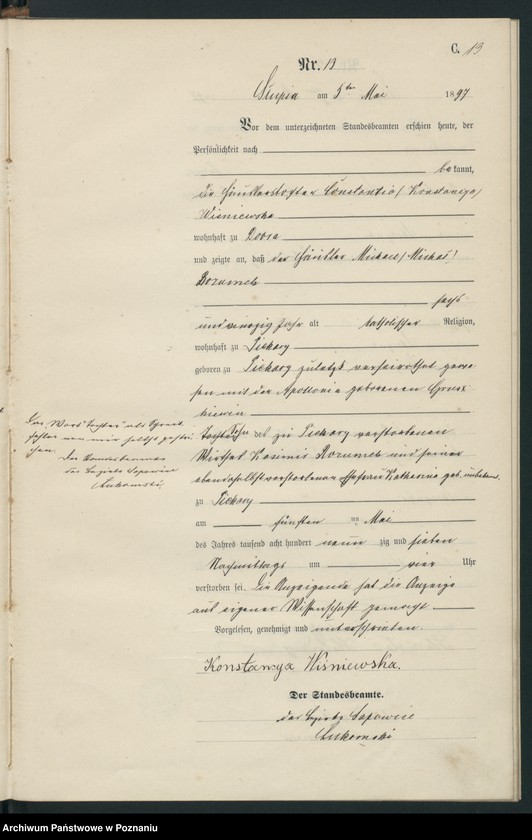 C. 13
Nr. 13
Slupia am 5ten Mai 1897
Vor dem unterzeichneten Standesbeamten erschien heute, der
Persönlichkeit nach
bekannt,
die Häuslerstochter Constantia (Konstancya)
Wisniewska
wohnhaft zu Dobra
und zeigte an, daß der Michael (Michał)
sechs
und Jahr alt katholischer Religion,
wohnhaft zu Piekary
geboren zu Piekary zuletzt verheirathet gewe
sen mit der Apollonia geborenen
Das Wort "tochter" als Schreib
fehler von mir selbst gestri
chen.
Der Standesbeamte
des Bezirks Sapowice
Lukomski
Tochter Sohn des zu Piekary verstorbenen
Wirths Kasimir und seiner
ebendaselbst verstorbenen Ehefrau Katharina geb. unbekannt.
zu Piekary
am fünften Mai
des Jahres tausend acht hundert neunzig und sieben
Nachmittags um vier Uhr
verstorben sei. Die Anzeigende hat die Anzeige
aus eigener Wissenschaft gemacht
Vorgelesen, genehmigt und unterschrieben.
Konstancya Wiśniewska.
Der Standesbeamte.
des Bezirks Sapowice
Lukomski
Archiwum Państwowe w Poznaniu